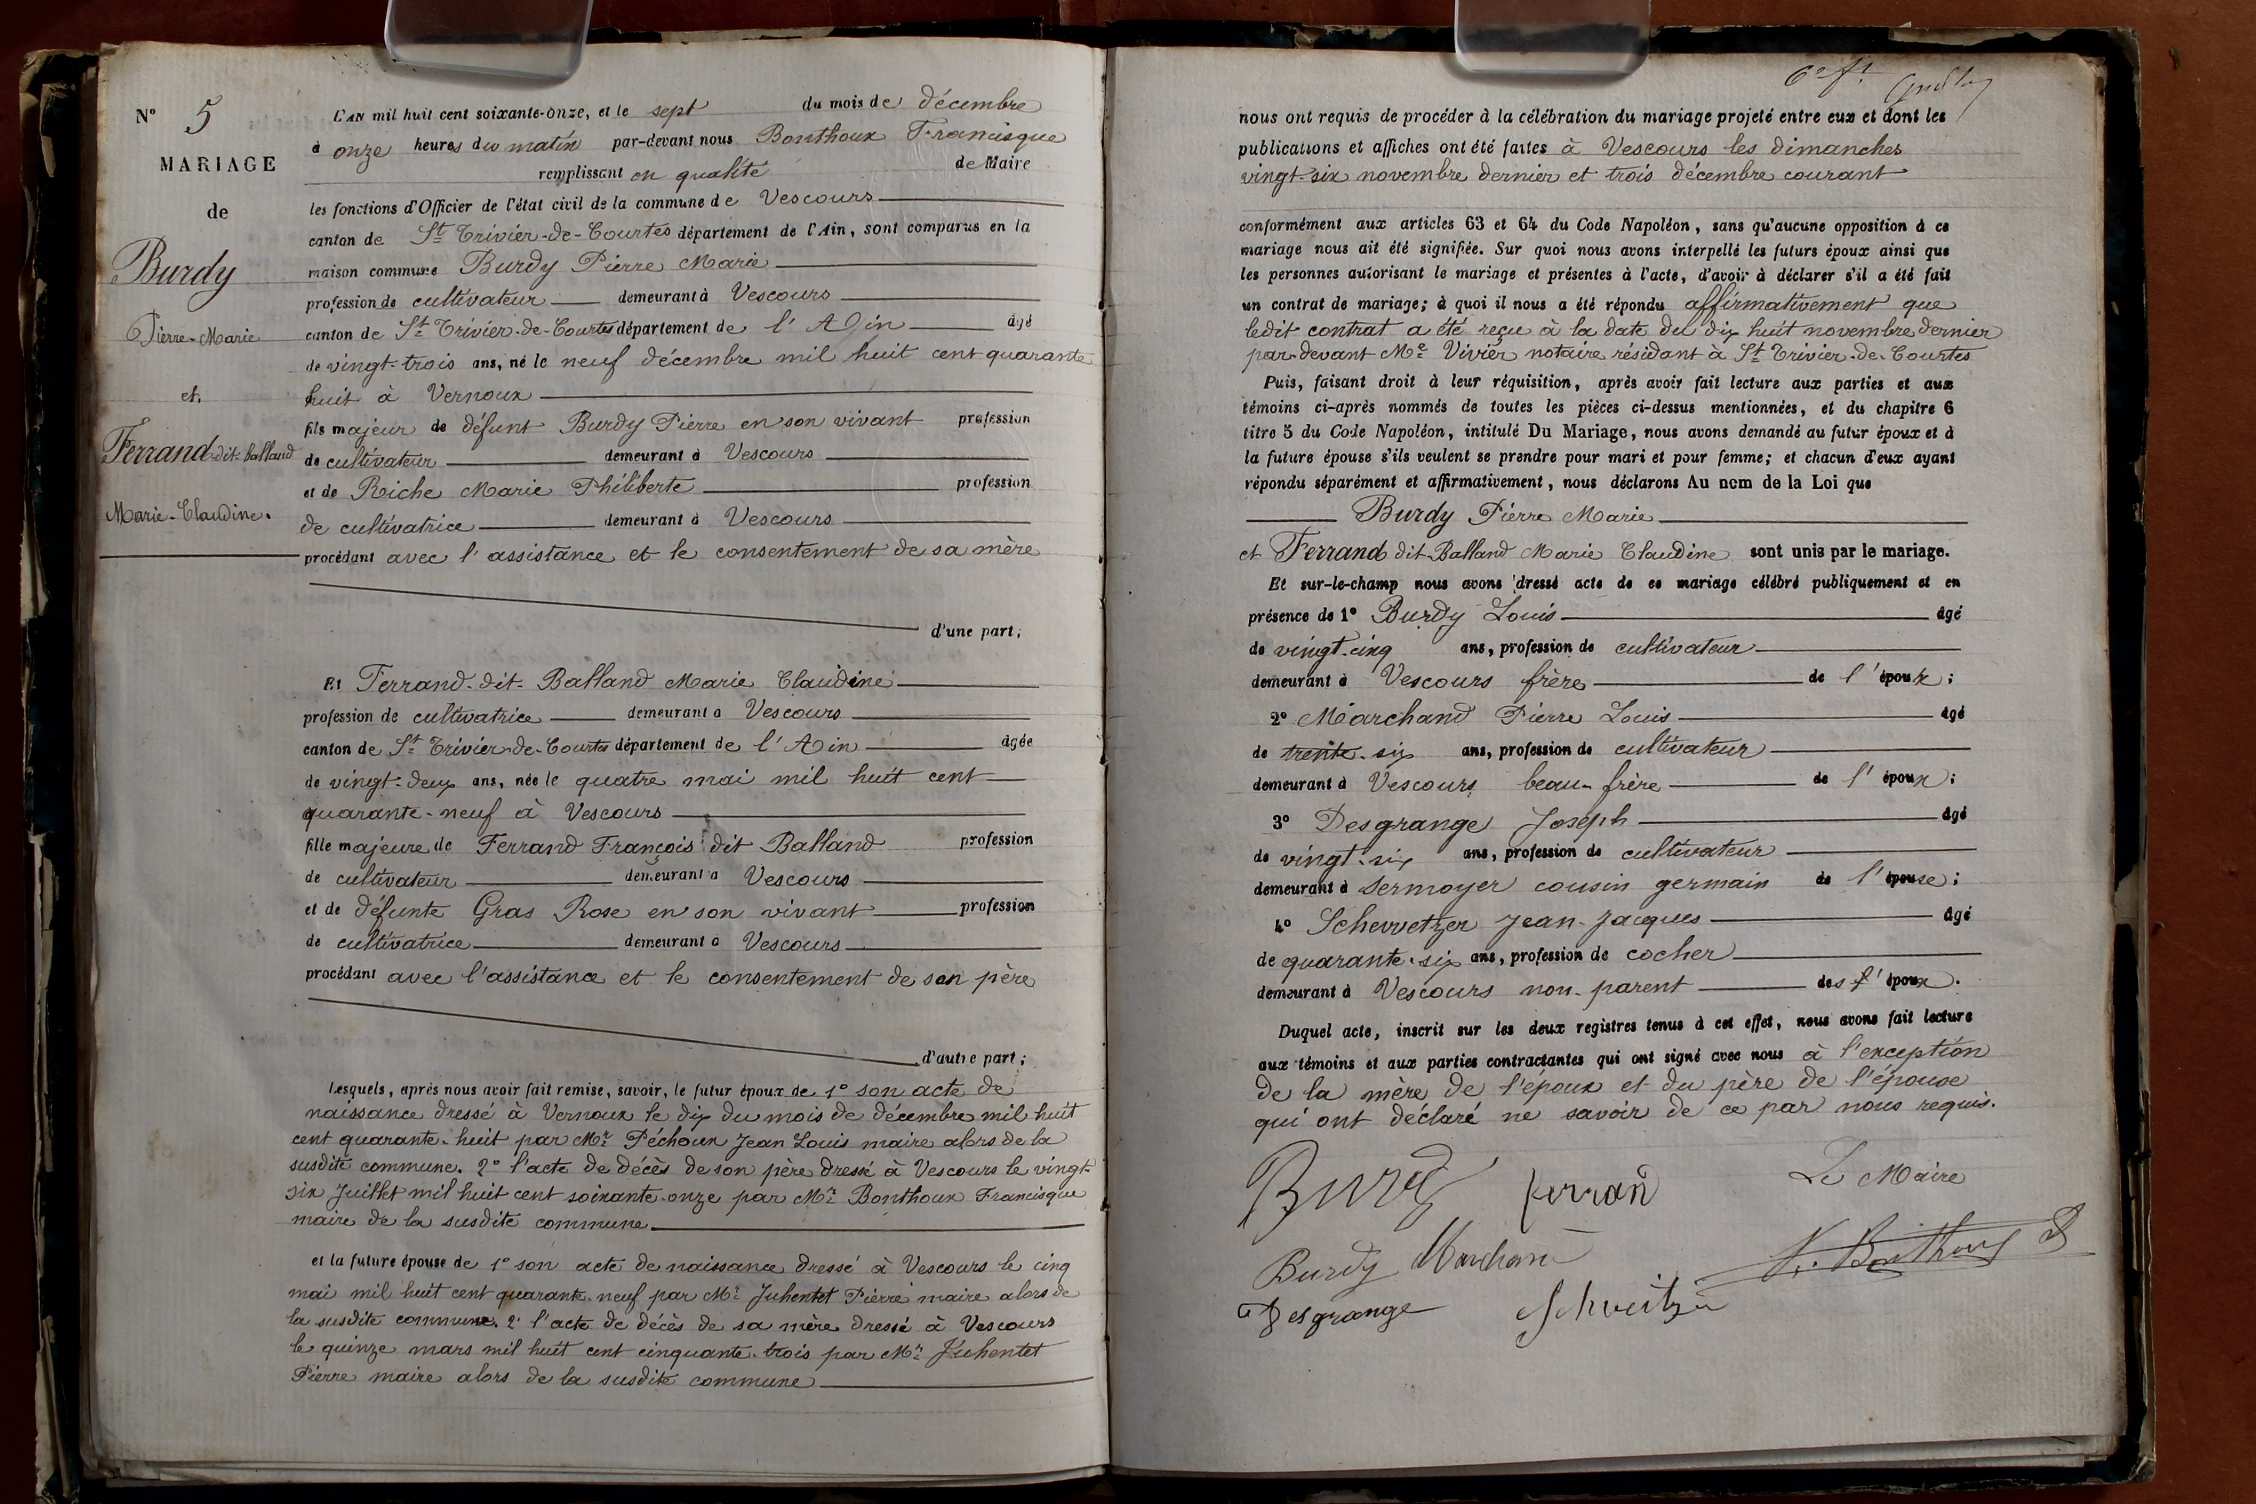 N° 5
MARIAGE
de
Burdy
Pierre-Marie
et
Ferrand-dit-Balland
Marie-Claudine.
L'AN mil huit cent soixante-onze, et le sept du mois de décembre
à onze heures du matin par-devant nous Bonthoux Francisque
remplissant en qualité de Maire
les fonctions d'Officier de l'état civil de la commune de Vescours
canton de St Trivier-de-Courtes département de l'Ain, sont comparus en la
maison commune Burdy Pierre Marie
profession de cultivateur demeurant à Vescours
canton de St Trivier-de-Courtes département de l'Ain âgé
de vingt-trois ans, né le neuf décembre mil huit cent quarante
huit à Vernoux
fils majeur de défunt Burdy Pierre en son vivant profession
de cultivateur demeurant à Vescours
et de Riche Marie Philiberte profession
de cultivatrice demeurant à Vescours
procédant avec l'assistance et le consentement de sa mère
d'une part;
Et Ferrand-dit-Balland Marie Claudine
profession de cultivatrice demeurant à Vescours
canton de St Trivier-de-Courtes département de l'Ain âgée
de vingt-deux ans, née le quatre mai mil huit cent
quarante-neuf à Vescours
fille majeure de Ferrand François dit Balland profession
de cultivateur demeurant à Vescours
et de défunte Gras Rose en son vivant profession
de cultivatrice demeurant à Vescours
procédant avec l'assistance et le consentement de son père
d'autre part;
Lesquels, après nous avoir fait remise, savoir, le futur époux de 1° son acte de
naissance dressé à Vernoux le dix du mois de décembre mil huit
cent quarante-huit par Mr Péchoux Jean Louis maire alors de la
susdite commune. 2° l'acte de décès de son père dressé à Vescours le vingt-
six Juillet mil huit cent soixante-onze par Mr Bonthoux Francisque
maire de la susdite commune
et la future épouse de 1° son acte de naissance dressé à Vescours le cinq
mai mil huit cent quarante-neuf par Mr Juhentet Pierre maire alors de
la susdite commune. 2° l'acte de décès de sa mère dressé à Vescours
le quinze mars mil huit cent cinquante-trois par Mr Juhentet
Pierre maire alors de la susdite commune
6e ft
nous ont requis de procéder à la célébration du mariage projeté entre eux et dont les
publications et affiches ont été faites à Vescours les dimanches
vingt-six novembre dernier et trois décembre courant
conformément aux articles 63 et 64 du Code Napoléon, sans qu'aucune opposition à ce
mariage nous ait été signifiée. Sur quoi nous avons interpellé les futurs époux ainsi que
les personnes autorisant le mariage et présentes à l'acte, d'avoir à déclarer s'il a été fait
un contrat de mariage; à quoi il nous a été répondu affirmativement que
ledit contrat a été reçu à la date du dix huit novembre dernier
par-devant Me Vivier notaire résidant à St Trivier-de-Courtes
Puis, faisant droit à leur réquisition, après avoir fait lecture aux parties et aux
témoins ci-après nommés de toutes les pièces ci-dessus mentionnées, et du chapitre 6
titre 5 du Code Napoléon, intitulé Du Mariage, nous avons demandé au futur époux et à
la future épouse s'ils veulent se prendre pour mari et pour femme; et chacun d'eux ayant
répondu séparément et affirmativement, nous déclarons Au nom de la Loi que
Burdy Pierre Marie
et Ferrand dit-Balland Marie Claudine sont unis par le mariage.
Et sur-le-champ nous avons dressé acte de ce mariage célébré publiquement et en
présence de 1° Burdy Louis âgé
de vingt-cinq ans, profession de cultivateur
demeurant à Vescours frère de l'époux;
2° Marchand Pierre Louis âgé
de trente-six ans, profession de cultivateur
demeurant à Vescours beau-frère de l'époux;
3° Desgrange Joseph âgé
de vingt-six ans, profession de cultivateur
demeurant à Sermoyer cousin germain de l'épouse;
4° Schevvetzer Jean-Jacques âgé
de quarante-six ans, profession de cocher
demeurant à Vescours non-parent des époux.
Duquel acte, inscrit sur les deux registres tenus à cet effet, nous avons fait lecture
aux témoins et aux parties contractantes qui ont signé avec nous à l'exception
de la mère de l'époux et du père de l'épouse
qui ont déclaré ne savoir de ce par nous requis.
Burdy ferrand Le Maire
Burdy Marchand F. Bonthoux
Desgrange Schveitzer